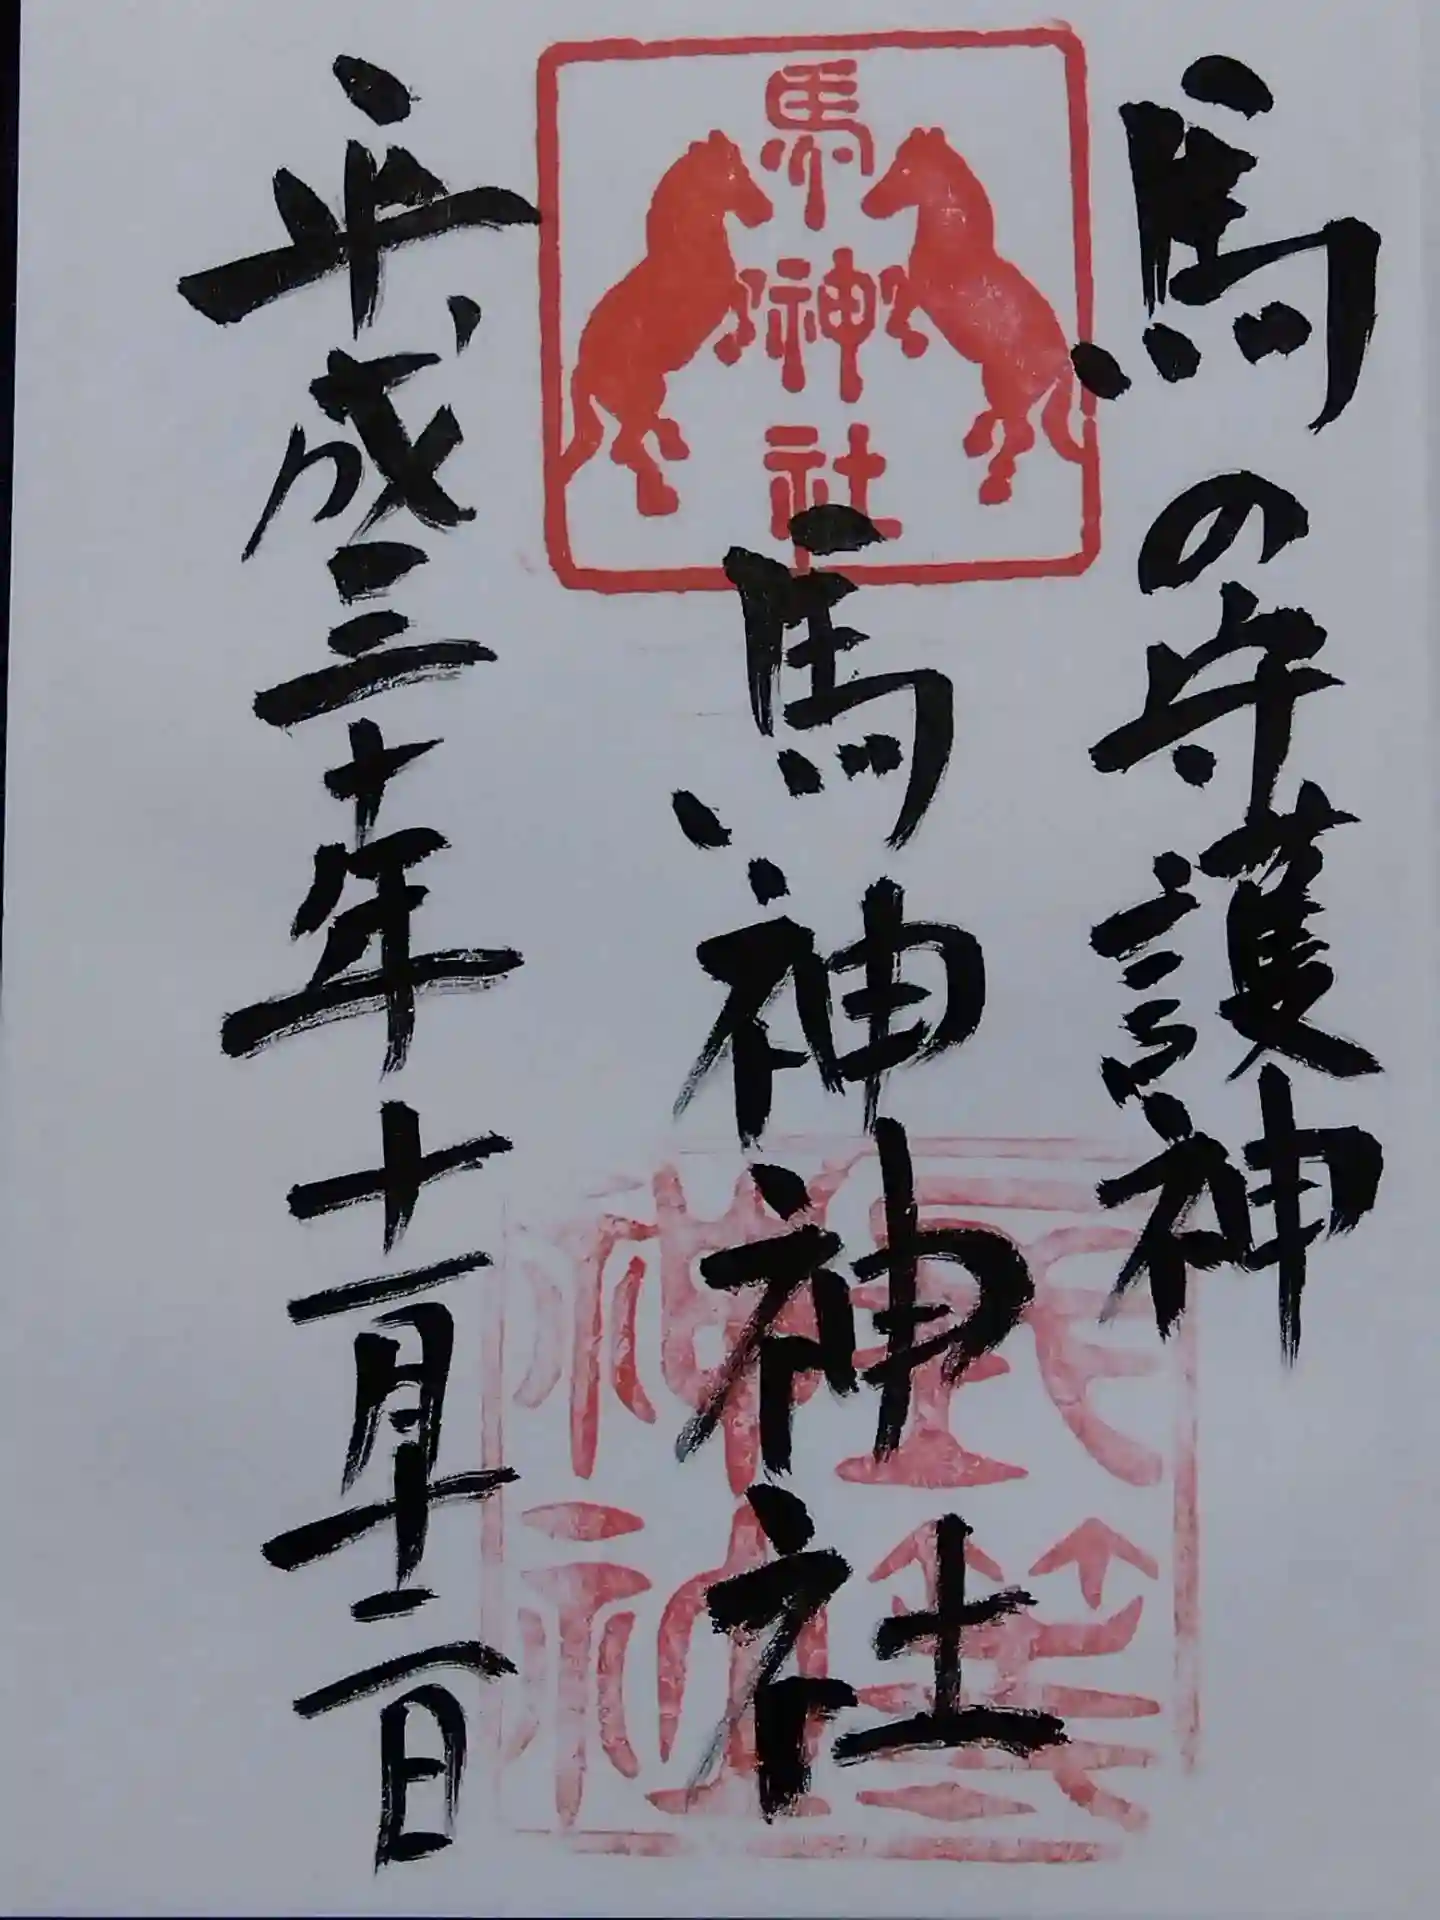 馬の守護神
馬神社
馬神神社
長等
神社
平成三十年十一月十二日